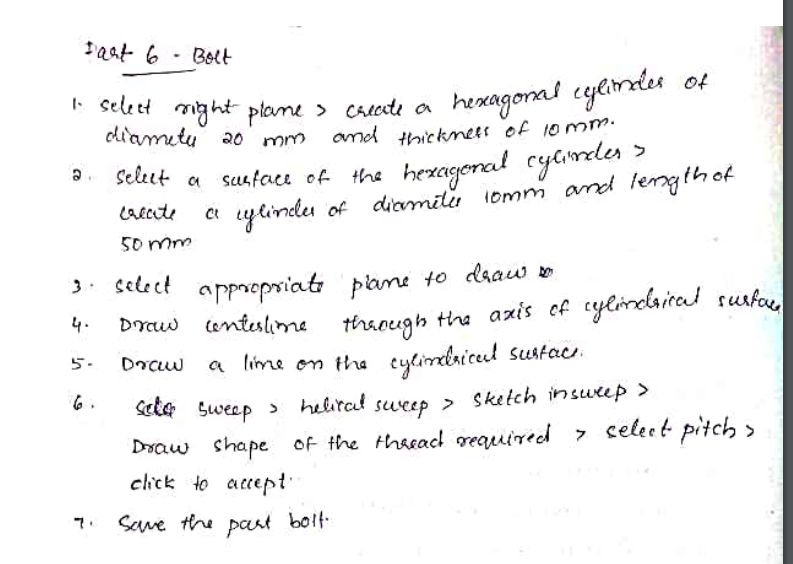 Part 6 - Bolt
1. select right plane > create a hexagonal cylinder of
diameter 20 mm and thickness of 10 mm.
2. Select a surface of the hexagonal cylinder >
create a cylinder of diameter 10mm and length of
50 mm
3. select appropriate plane to draw
4. Draw centerline through the axis of cylindrical surface
5. Draw a line on the cylindrical surface.
6. Sweep > helical sweep > sketch insweep >
Draw shape of the thread required > select pitch >
click to accept.
7. Save the part bolt.